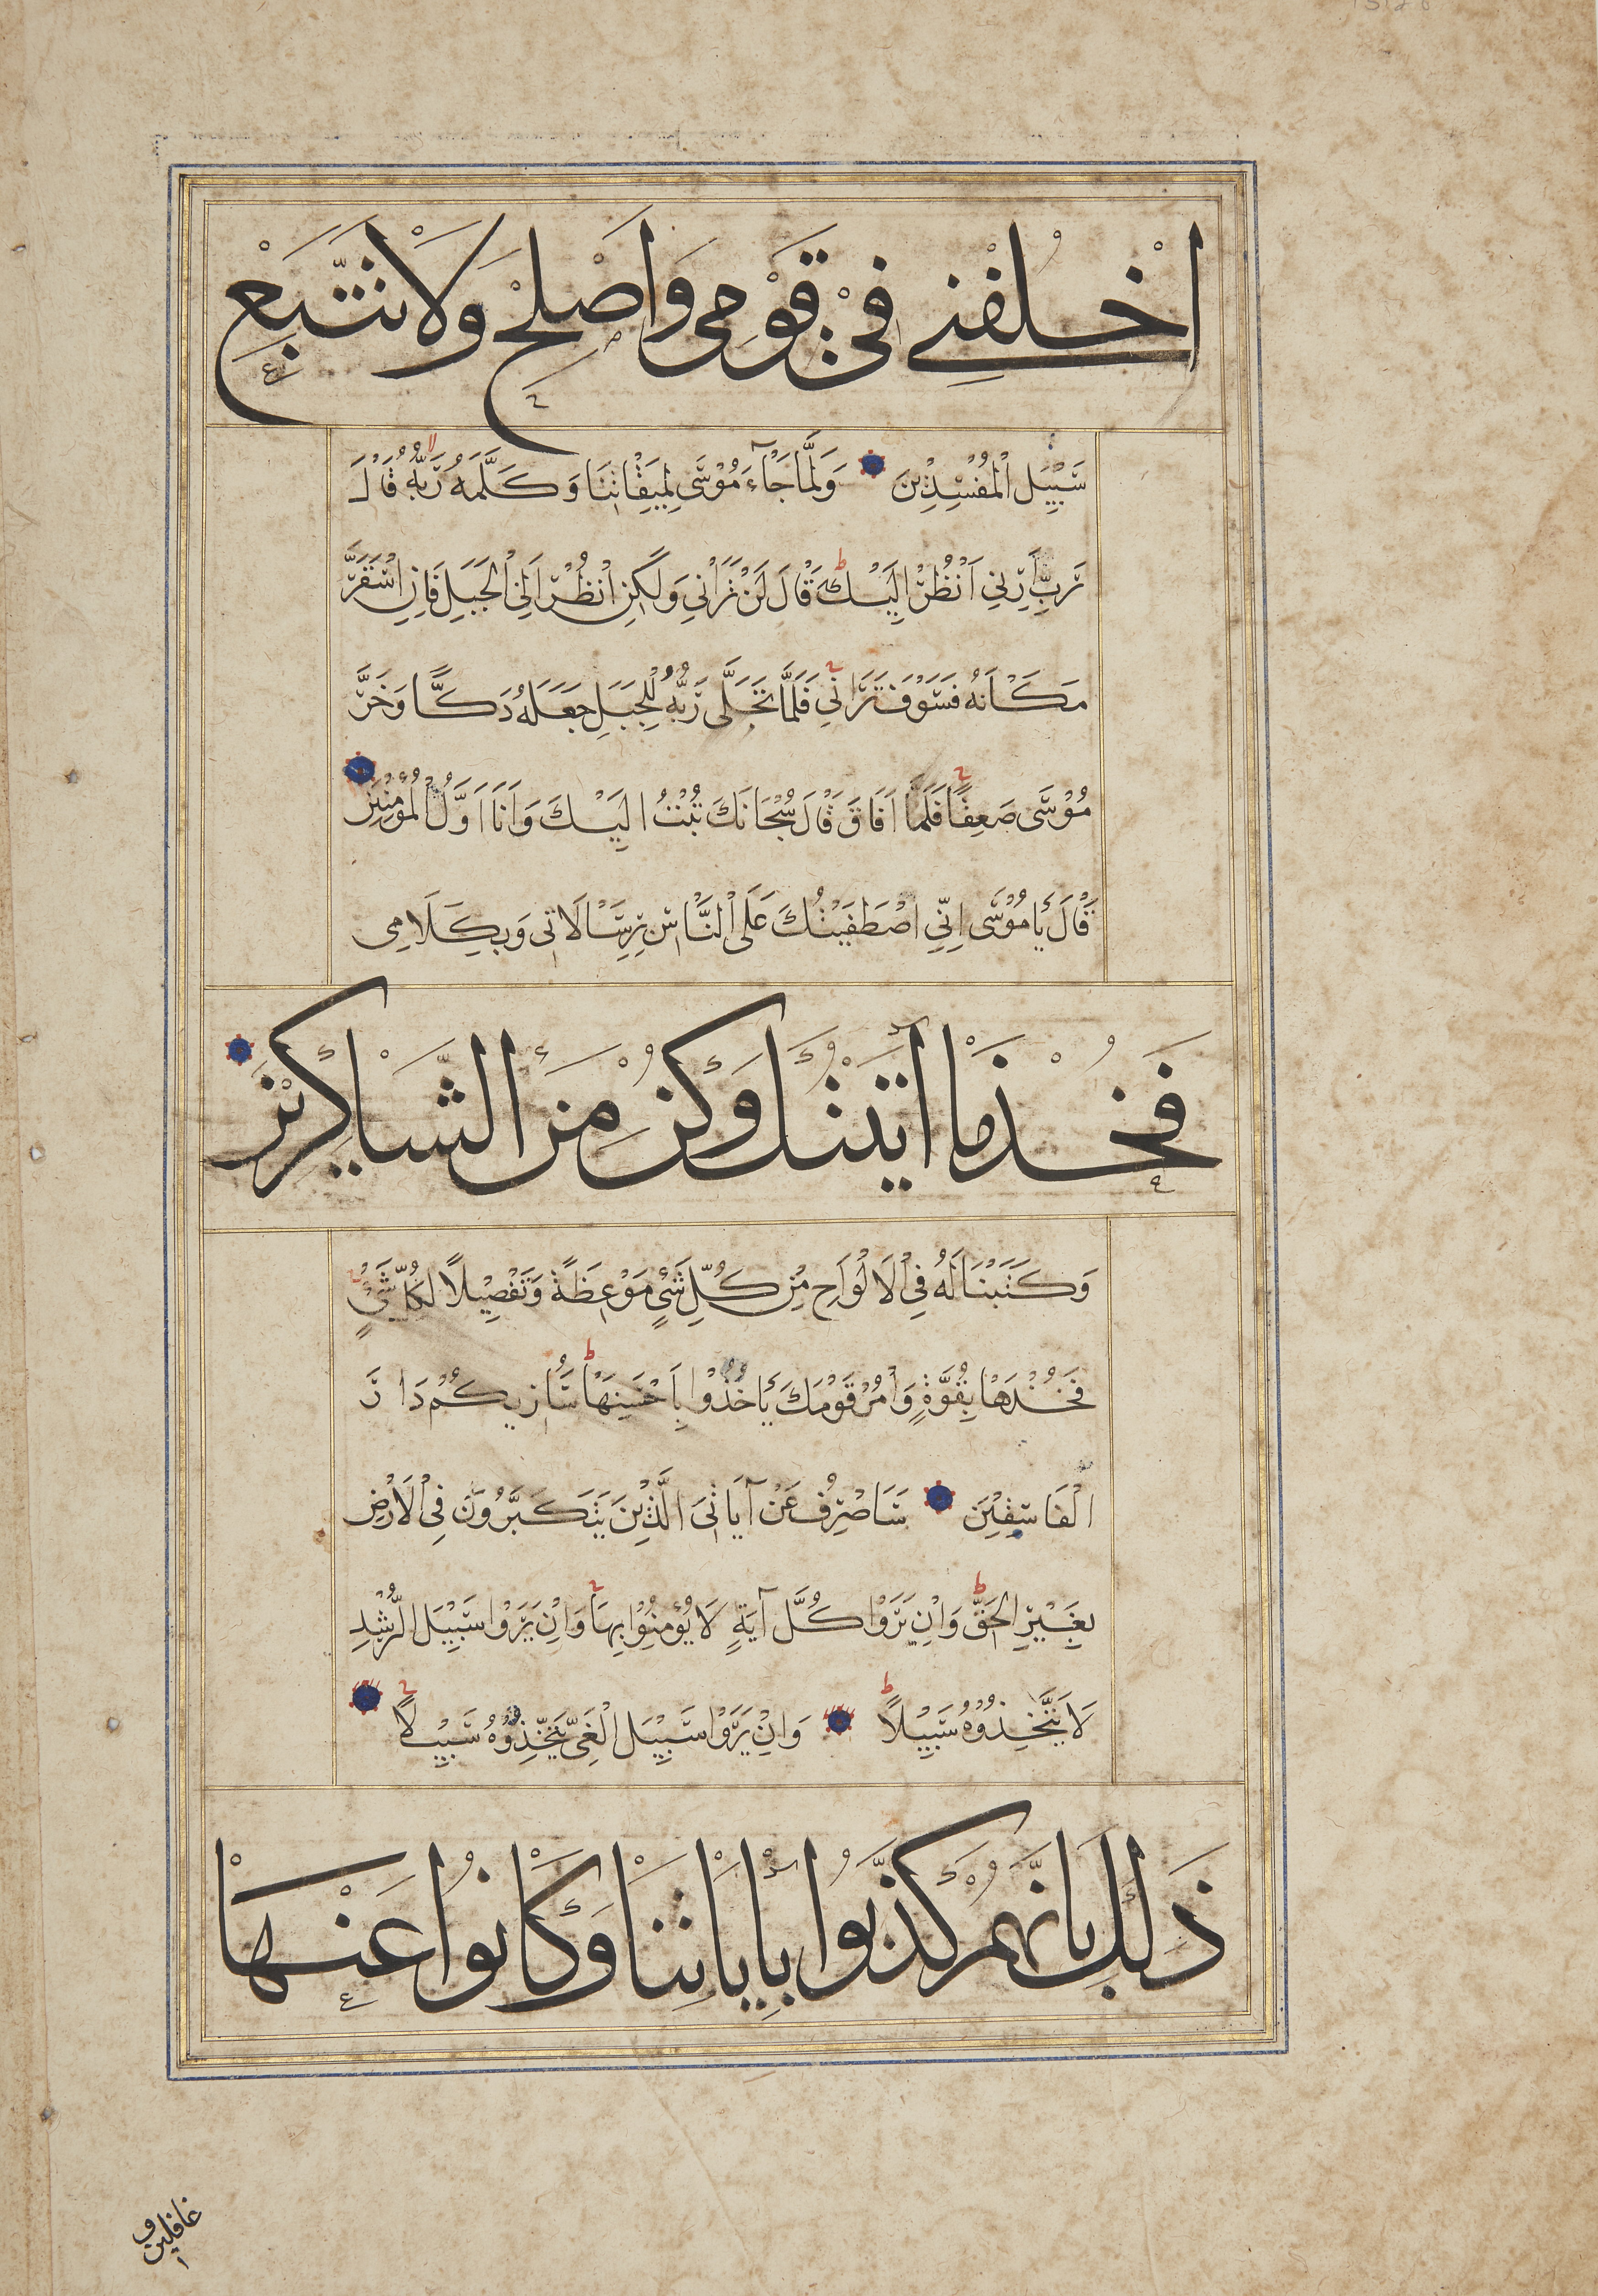 اخْلُفْنِي فِي قَوْمِي وَاَصْلِحْ وَلَا تَتَّبِعْ
سَبِيْلَ الْمُفْسِدِيْنَ وَلَمَّا جَآءَ مُوْسَى لِمِيْقَاتِنَا وَكَلَّمَهُ رَبُّهُ قَالَ
رَبِّ اَرِنِي اَنْظُرْ اِلَيْكَ ط قَالَ لَنْ تَرَانِي وَلَكِنِ انْظُرْ اِلَى الْجَبَلِ فَاِنِ اسْتَقَرَّ
مَكَانَهُ فَسَوْفَ تَرَانِي فَلَمَّا تَجَلَّى رَبُّهُ لِلْجَبَلِ جَعَلَهُ دَكًّا وَخَرَّ
مُوْسَى صَعِقًا فَلَمَّا اَفَاقَ قَالَ سُبْحَانَكَ تُبْتُ اِلَيْكَ وَاَنَا اَوَّلُ الْمُؤْمِنِيْنَ
قَالَ يَا مُوْسَى اِنِّي اصْطَفَيْتُكَ عَلَى النَّاسِ بِرِسَالَاتِي وَبِكَلَامِي
فَخُذْ مَا آتَيْتُكَ وَكُنْ مِنَ الشَّاكِرِيْنَ
وَكَتَبْنَا لَهُ فِي الْاَلْوَاحِ مِنْ كُلِّ شَيْءٍ مَوْعِظَةً وَتَفْصِيْلًا لِكُلِّ شَيْءٍ
فَخُذْهَا بِقُوَّةٍ وَاْمُرْ قَوْمَكَ يَاْخُذُوْا بِاَحْسَنِهَا ط سَاُرِيكُمْ دَارَ
الْفَاسِقِيْنَ سَاَصْرِفُ عَنْ آيَاتِيَ الَّذِيْنَ يَتَكَبَّرُوْنَ فِي الْاَرْضِ
بِغَيْرِ الْحَقِّ ط وَاِنْ يَرَوْا كُلَّ آيَةٍ لَا يُؤْمِنُوْا بِهَا وَاِنْ يَرَوْا سَبِيْلَ الرُّشْدِ
لَا يَتَّخِذُوْهُ سَبِيْلًا ط وَاِنْ يَرَوْا سَبِيْلَ الْغَيِّ يَتَّخِذُوْهُ سَبِيْلًا
ذَلِكَ بِاَنَّهُمْ كَذَّبُوا بِاٰيَاتِنَا وَكَانُوا عَنْهَا
غافلين و